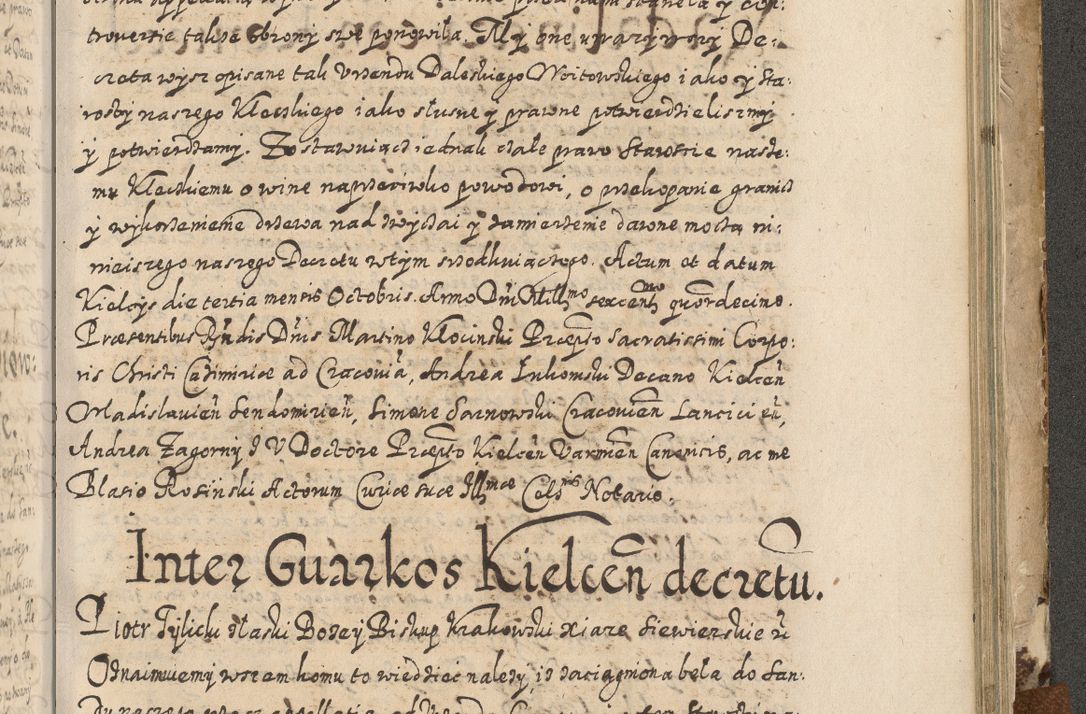 troversie także obrony swe ponowiła. My one uważywszy De:
creta wysz opisane tak Urzendu Daleskiego Woitowskiego i ako y sta:
rosty naszego Kłeckiego iako słusne y prawne potwierdzieliszmy
y potwierdzamy. Zostawuiącz iednak całe prawo Starostie nasze:
mu Kłeckiemu o wine naprzeciwko powodowi, o przekopanie granicz
y wykorzenienie drzewa nad zwyczai y zamierzenie dawne moczą ni:
nieiszego naszego Decretu wtym srzodkuiączego. Actum et datum
Kielcys die tertia mensis Octobris. Anno Dni Mill mo sexcent mo quordecimo.
Præsentibus Rndis Dnis Martino Kłocinski Præpto Sacratissimi Corpo:
ris Christi Casimiriæ ad Cracoviã, Andrea Lukomski Decano Kielceñ
Vladislavieñ Sendomirieñ, Simone Sarnowski Cracovieñ Lancicieñ,
Andrea Zagorny I V Doctore Præpto Kielceñ Varmeñ Canonicis, ac me
Blasio Rosinski Actorum Curiæ suæ Ill mæ Cels nis Notario.
Inter Guarkos Kielceñ decretũ.
Piotr Tylicki z łaski Bozey Biskup Krakowski xiaze Siewierskie ũ
Oznaimuiemy wszem komu to wiedzieć nalezy, iz zaciągniona beła do San: